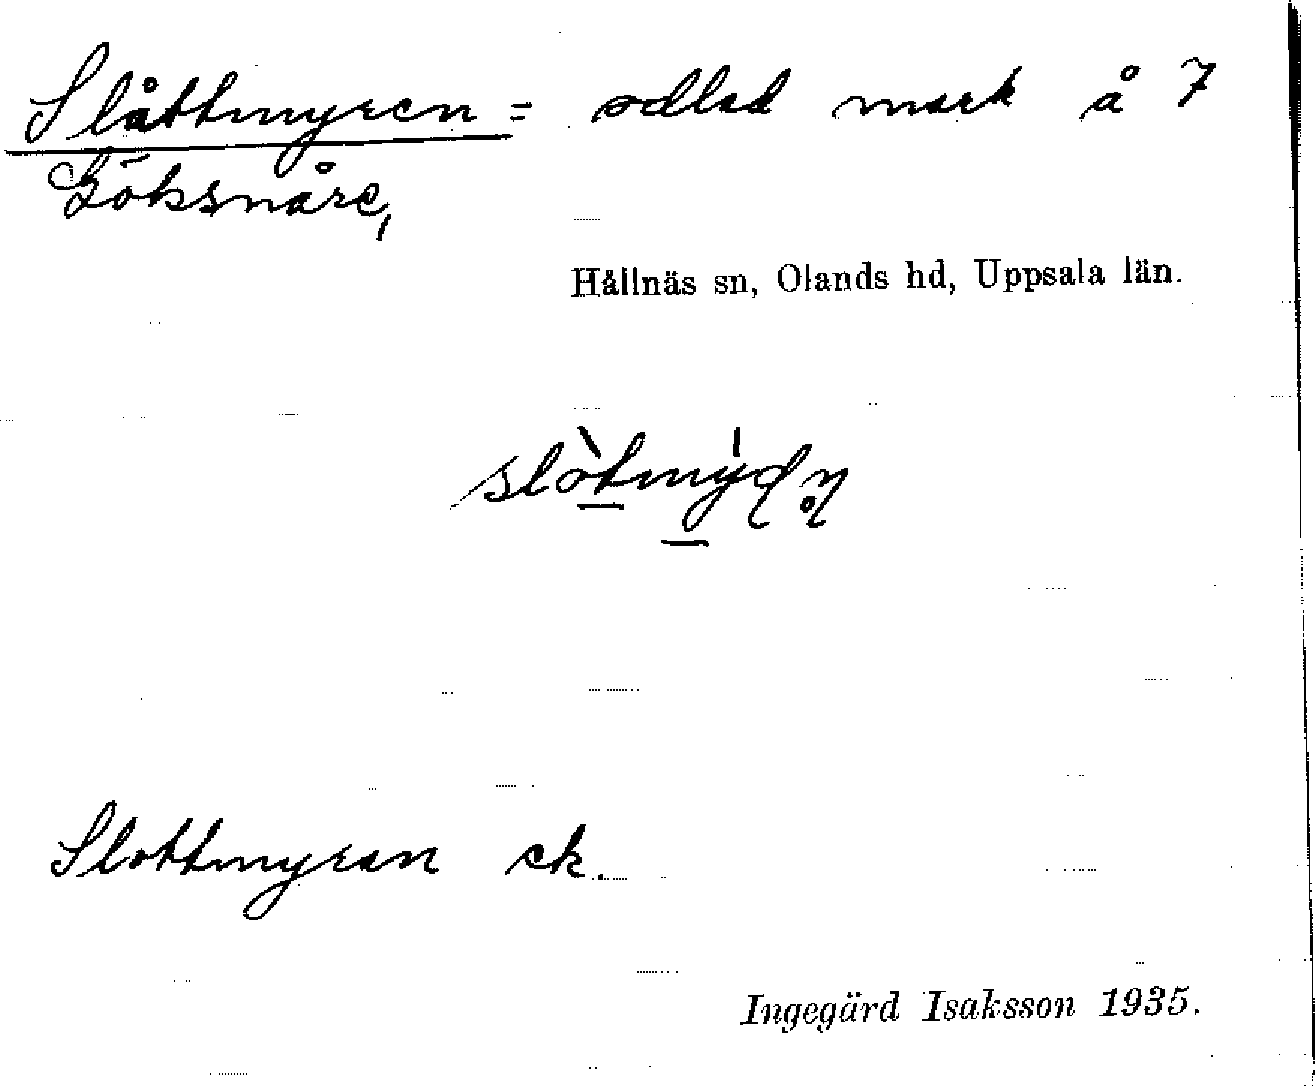 Slåttmyren = odlad mark å 7
Göksnåre,
Hållnäs sn, Olands hd, Uppsala län.
Slottmyran ek.
Ingegärd Isaksson 1935.